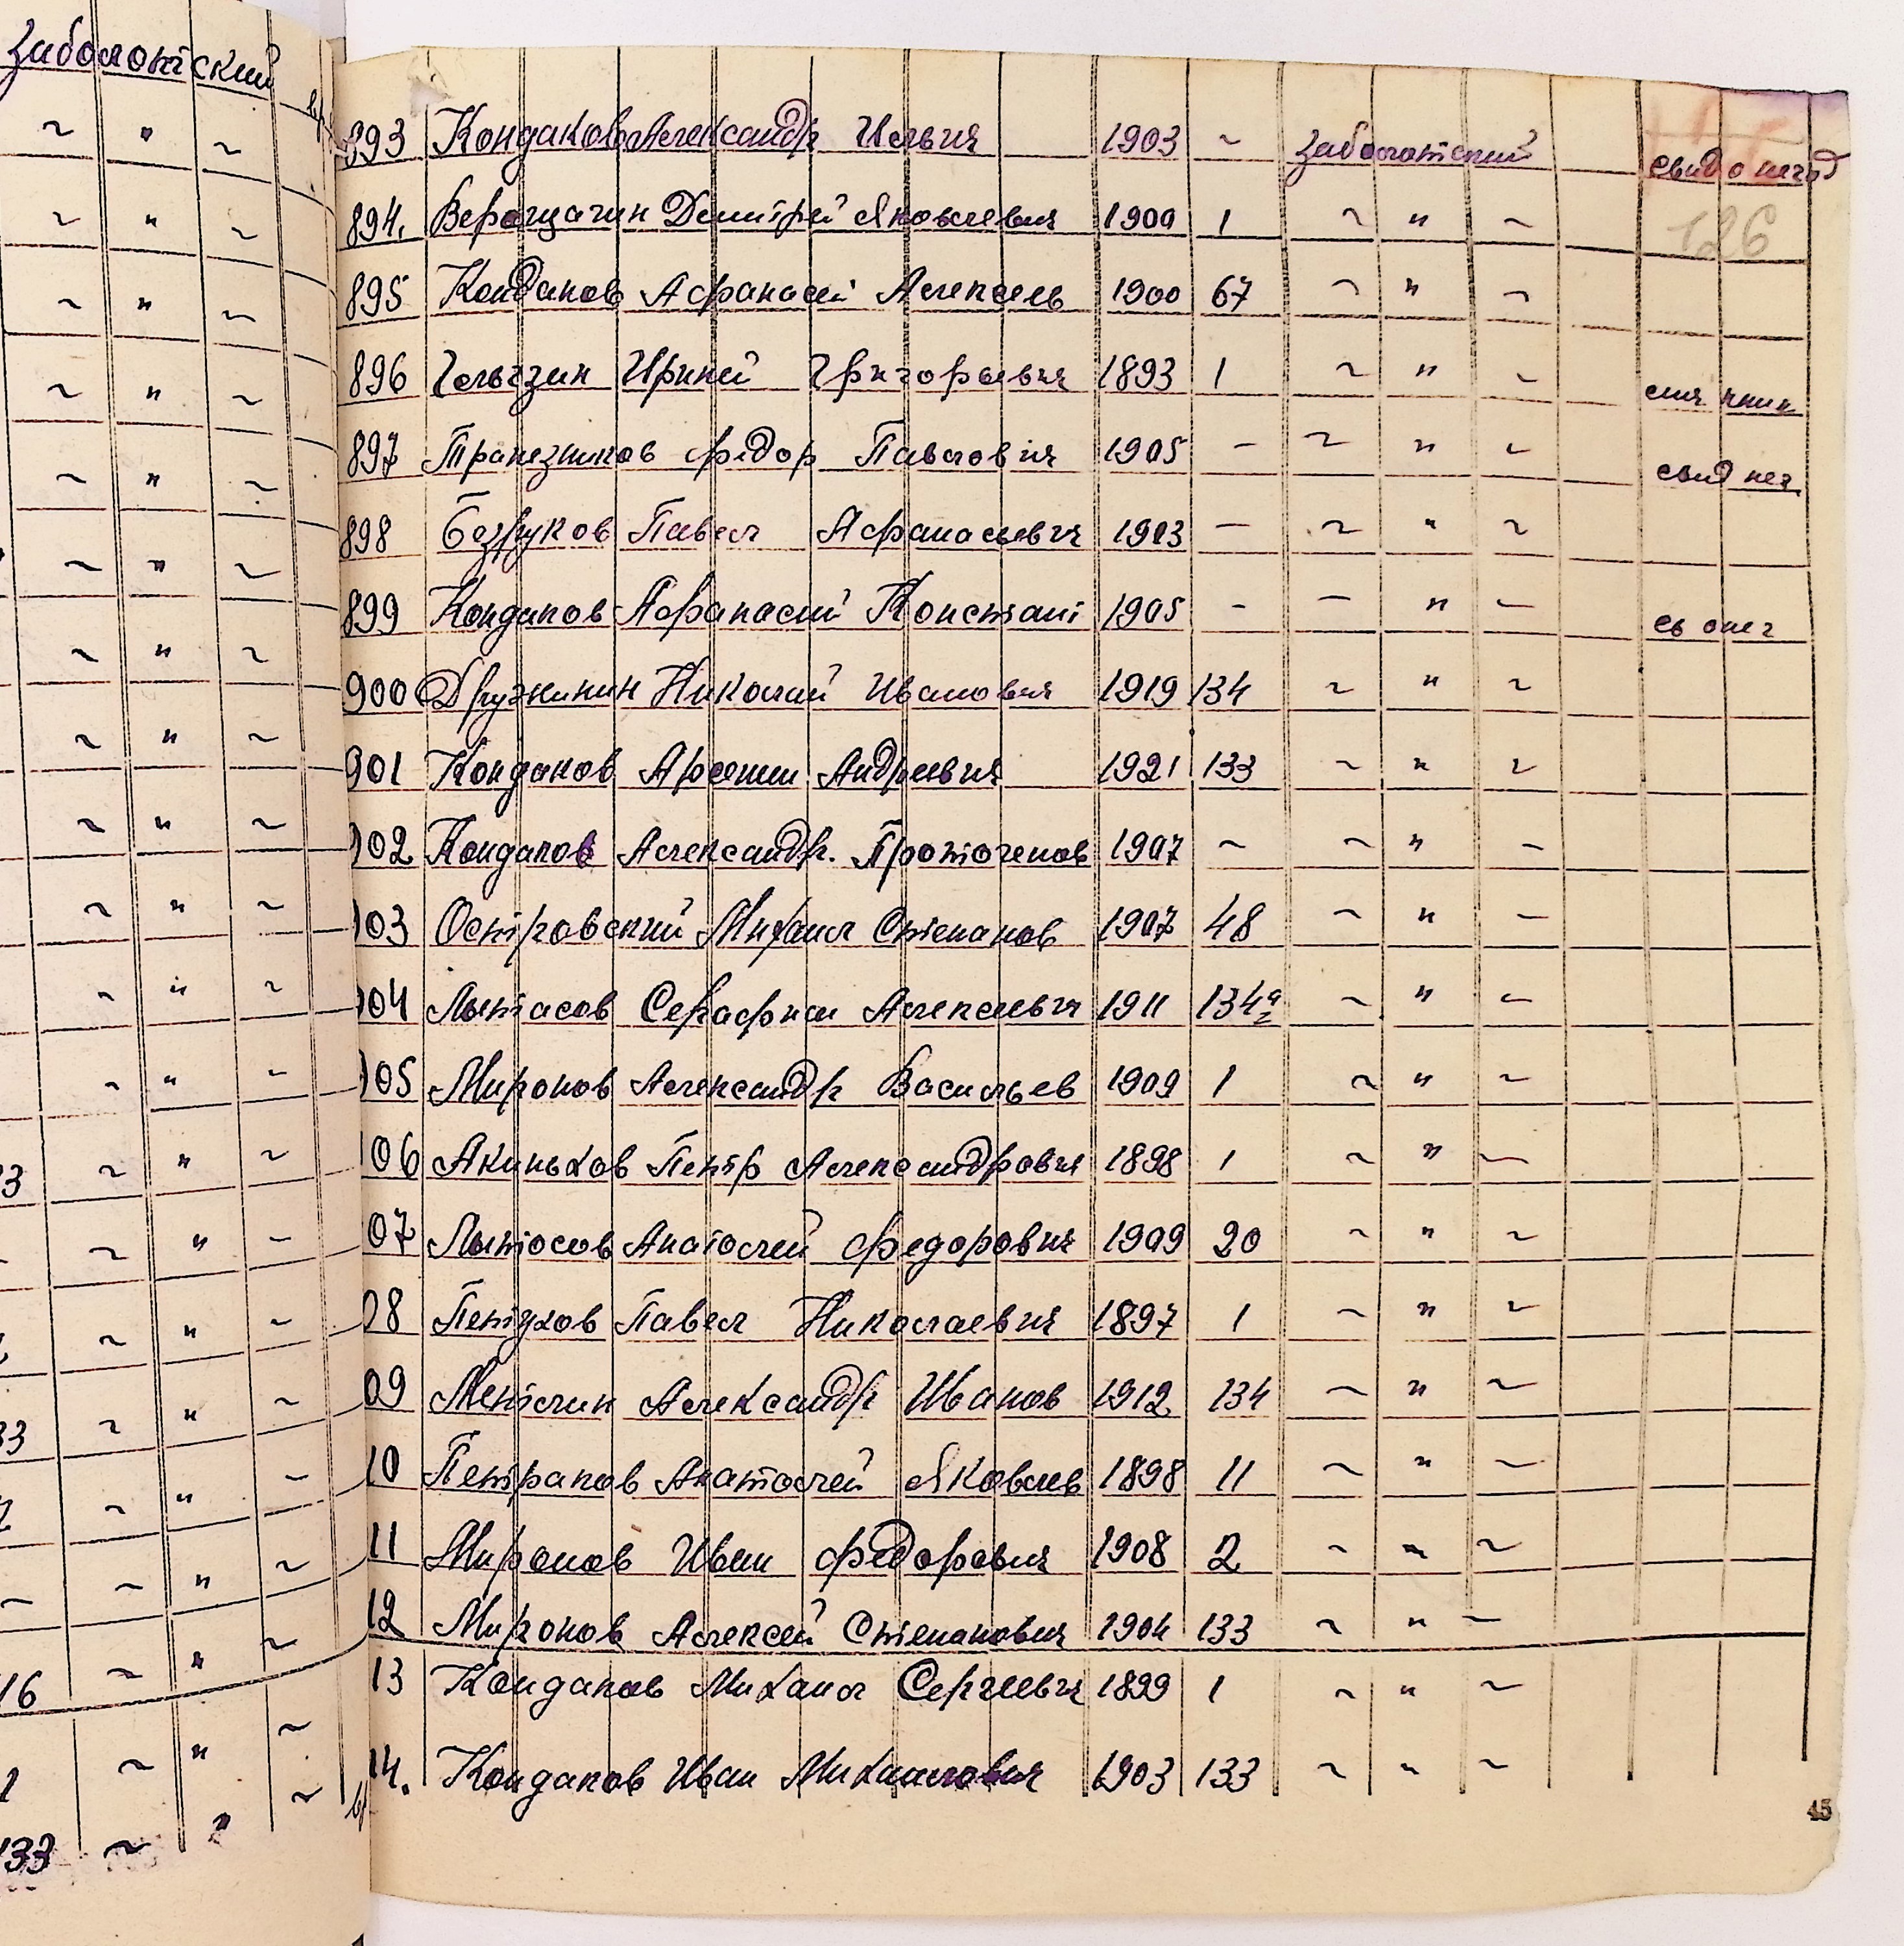 Заболотский
893 Кондаков Александр Ильич 1903 ~ Заболотский свид о негод
126
894. Верещагин Дмитрий Яковлевич 1900 1 ~ " ~
895 Кондаков Афанасий Алексеев 1900 67 ~ " ~
896 Гельгзин Ириней Григорьевич 1893 1 ~ " ~
897 Трапезников Федор Павлович 1905 – ~ " ~ свид нег.
898 Безруков Павел Афанасьевич 1903 — ~ " ~
899 Кондаков Афанасий Констант 1905 - – " ~ св о нег
900 Дружинин Николай Иванович 1919 134 ~ " ~
901 Кондаков Арсений Андреевич 1921 133 ~ " ~
902 Кондаков Александр. Протогенов 1907 ~ ~ " ~
903 Островский Михаил Степанов 1907 48 ~ " ~
904 Лытасов Серафим Алексеевич 1911 134а ~ " ~
905 Миронов Александр Васильев 1909 1 ~ " ~
06 Акиньхов Петр Александрович 1898 1 ~ " ~
07 Лытосов Анатолий Федорович 1909 20 ~ " ~
08 Петухов Павел Николаевич 1897 1 ~ " ~
09 Метлин Александр Иванов 1912 134 ~ " ~
10 Петраков Анатолий Яковлев 1898 11 ~ " ~
11 Миронов Иван Федорович 1908 2 ~ " ~
12 Миронов Алексей Степанович 1904 133 ~ " ~
13 Кондаков Михаил Сергеевич 1899 1 ~ " ~
14. Кондаков Иван Михайлович 1903 133 ~ " ~
45